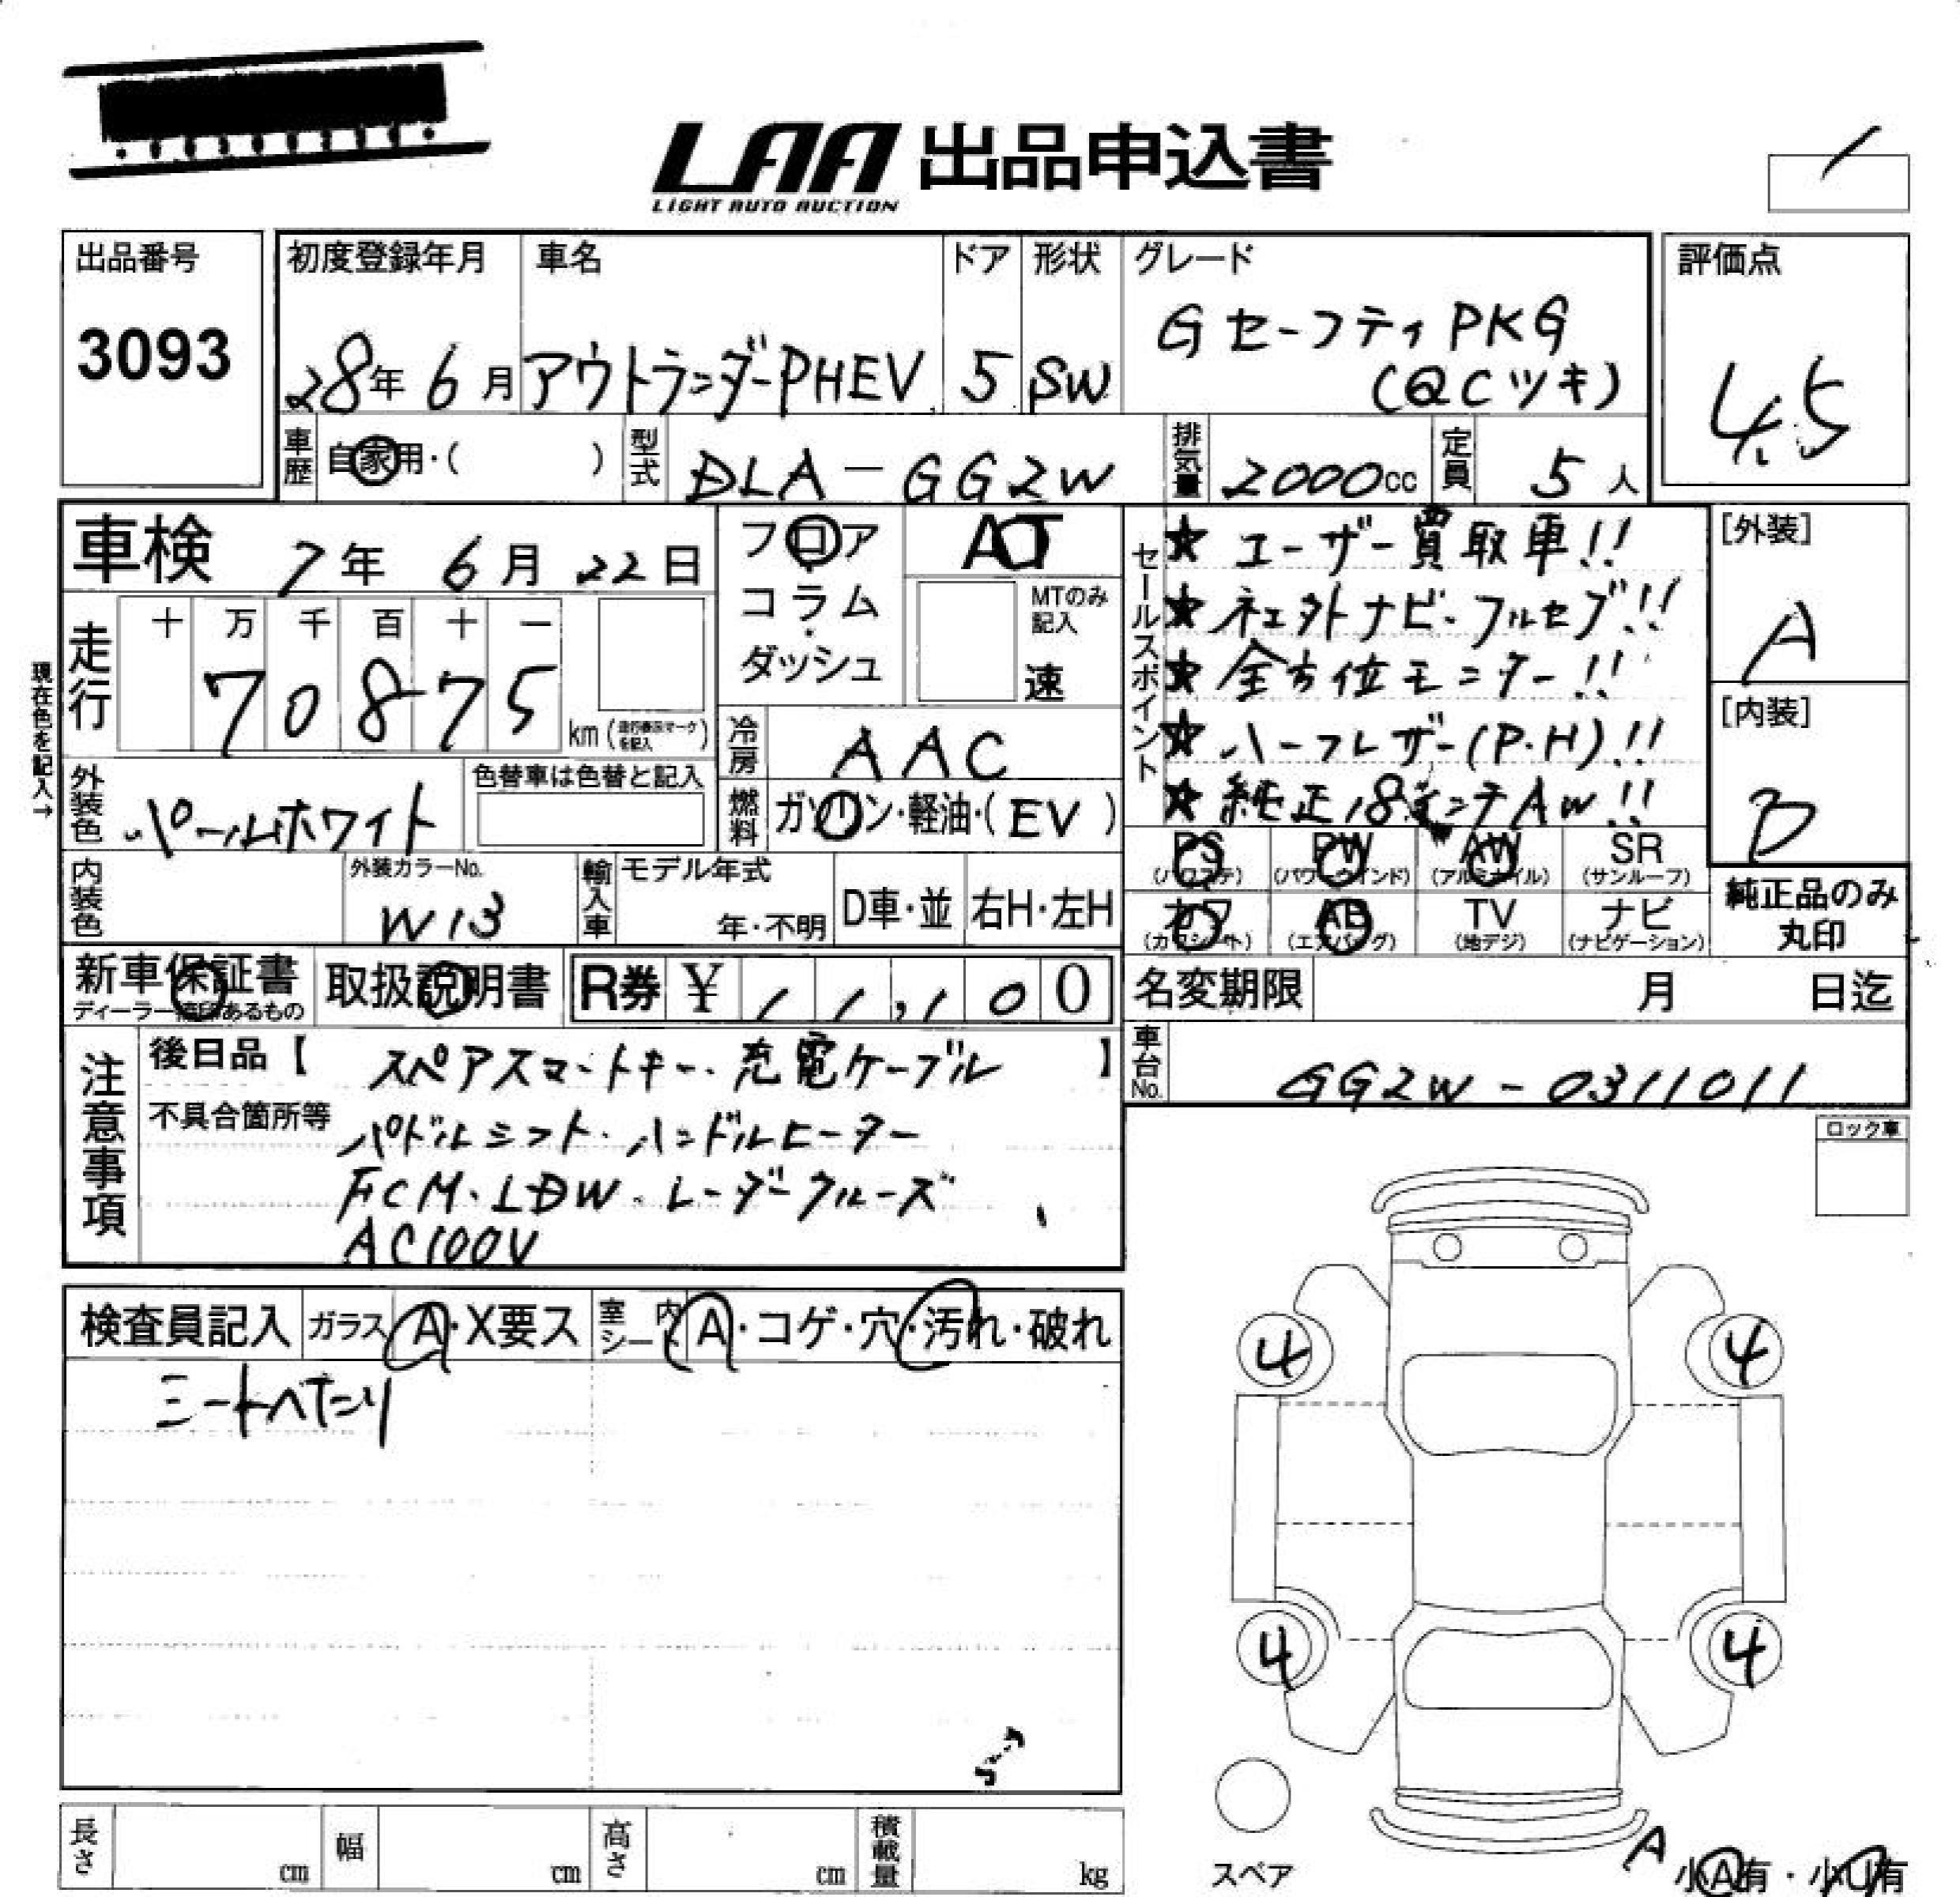 LAA 出品申込書
LIGHT AUTO AUCTION
出品番号
3093
初度登録年月
28年 6月
車名
アウトランダーPHEV
ドア
5
形状
SW
グレード
Gセーフティ PKG
(QCツキ)
評価点
4.5
車歴 自家用・( )
型式 DLA-GG2W
排気量 2000cc
定員 5人
車検 7年 6月 22日
フロア
コラム
ダッシュ
AT
MTのみ記入
速
走行
十 万 千 百 十 一
7 0 8 7 5
km (走行表示マークを記入)
現在色を記入→
冷房 AAC
外装色 パールホワイト
色替車は色替と記入
燃料 ガソリン・軽油・(EV)
内装色
外装カラーNo.
W13
輸入車
モデル年式
年・不明
D車・並
右H・左H
セールスポイント
★ ユーザー買取車!!
★ ネェ外ナビ・フルセブ!!
★ 全方位モニター!!
★ ハーフレザー(P.H)!!
★ 純正18インチAW!!
[外装]
A
[内装]
B
PS (パワステ)
PW (パワーウインド)
AW (アルミホイル)
SR (サンルーフ)
カワ (カワシート)
AB (エアバッグ)
TV (地デジ)
ナビ (ナビゲーション)
純正品のみ
丸印
新車保証書
取扱説明書
R券 ¥ 11,100
名変期限 月 日迄
車台No. GG2W-0311011
注意事項
後日品【 スペアスマートキー・充電ケーブル 】
不具合箇所等
パドルシフト・ハンドルヒーター
FCM・LDW・レーダークルーズ
AC100V
ロック車
検査員記入
ガラス A・X要ス
室内シート A・コゲ・穴・汚れ・破れ
シートヘタリ
4
4
4
4
スペア
A
小A有・小U有
長さ cm
幅 cm
高さ cm
積載量 kg